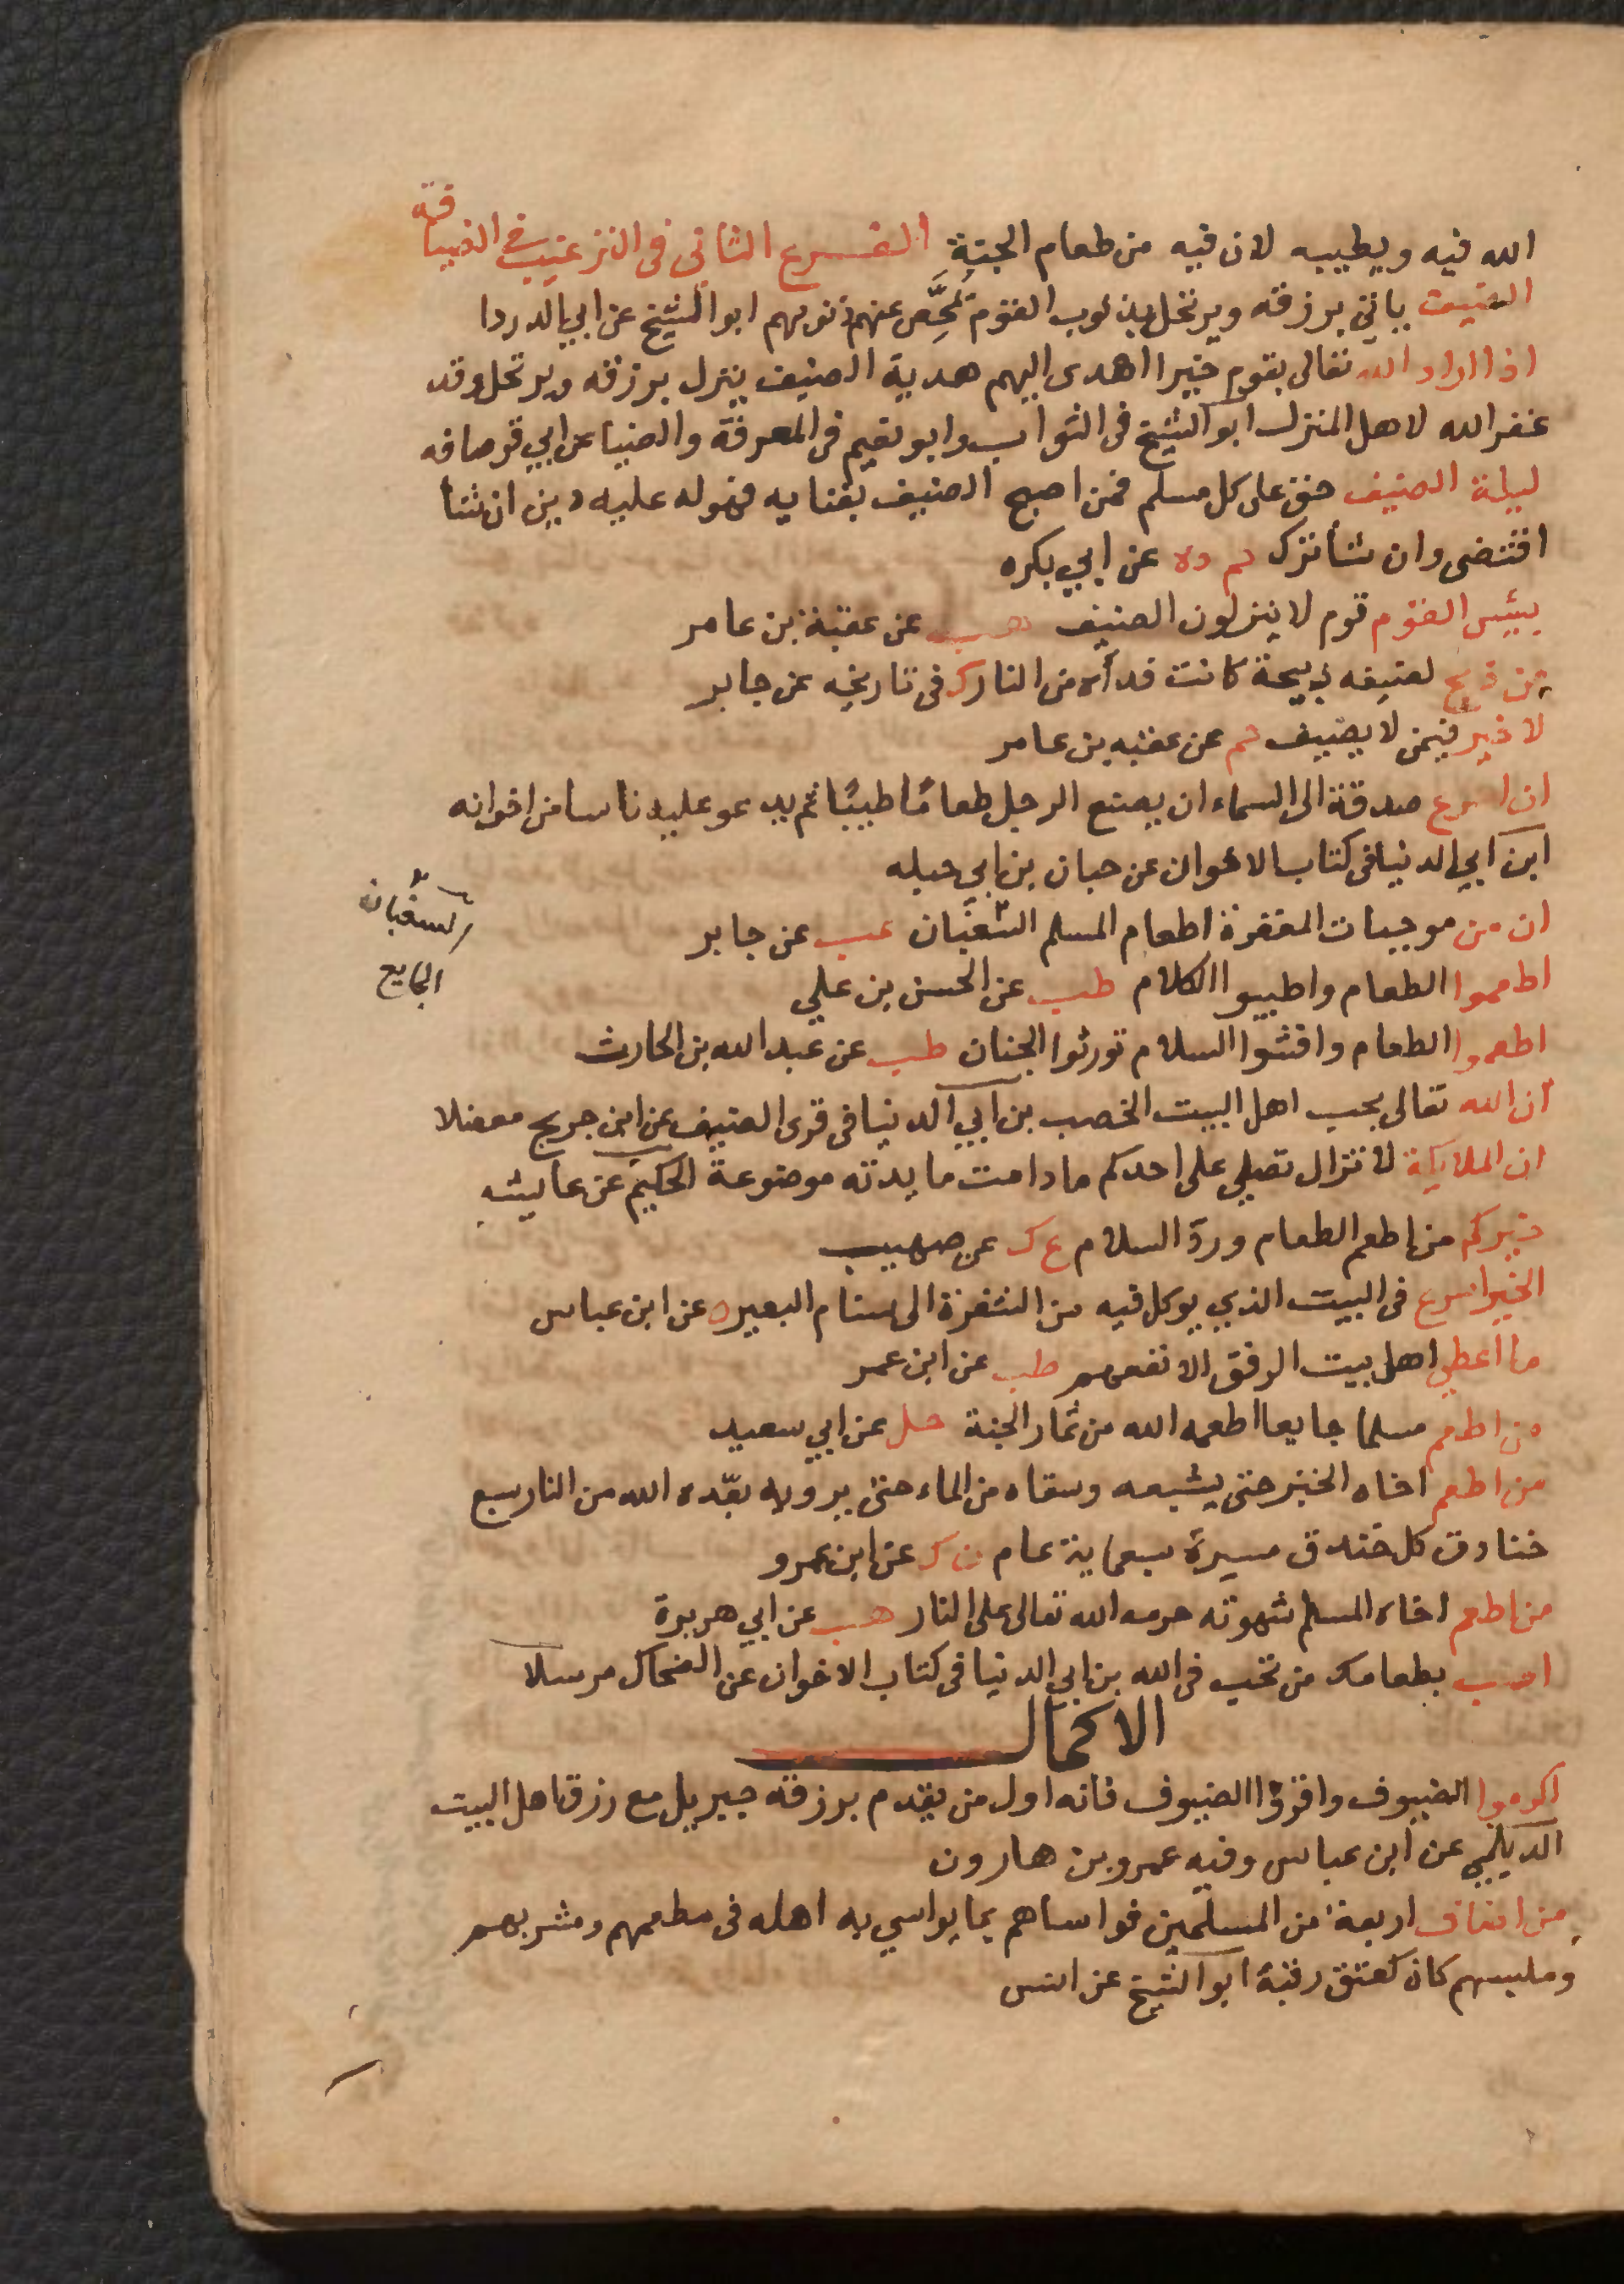 الله فيه ويطيبه لان فيه من طعام الجنة الفرع الثاني في الترغيب في الضيافة
الضيف ياتي برزقه ويرتحل بذنوب القوم يُمَحِّص عنهم ذنوبهم ابو الشيخ عن ابي الدردا
اذا اراد الله تعالى بقوم خيرا اهدى اليهم هدية الضيف ينزل برزقه ويرتحل وقد
غفر الله لاهل المنزل ابو الشيخ في الثواب وابو نعيم في المعرفة والضيا عن ابي قرصافه
ليلة الضيف حق على كل مسلم فمن اصبح الضيف بفنايه فهو له عليه دين ان شأ
اقتضى وان شأ ترك حم د ه عن ابي بكره
بيئس القوم قوم لا ينزلون الضيف هب عن عقبة بن عامر
من ذبح لضيفه ذبيحة كانت فدأه من النار ك في تاريخه عن جابر
لا خير فيمن لا يضيف حم عن عقبه بن عامر
ان اسرع صدقة الى السماء ان يصنع الرجل طعامًا طيبًا ثم يدعو عليه ناسا من اخوانه
ابن ابي الدنيا في كتاب الاخوان عن حبان بن ابي جبله
ان من موجبات المغفرة اطعام المسلم السغبان هب عن جابر
السغبان
الجايع
اطعموا الطعام واطيبوا الكلام طب عن الحسن بن علي
اطعموا الطعام وافشوا السلام تورثوا الجنان طب عن عبد الله بن الحارث
ان الله تعالى يحب اهل البيت الخصب بن ابي الدنيا في قرى الضيف عن ابن جريج معضلا
ان الملايكة لا تزال تصلي على احدكم ما دامت مايدته موضوعة الحكيم عن عايشه
خيركم من اطعم الطعام وردّ السلام ع ك عن صهيب
الخير اسرع في البيت الذي يوكل فيه من الشفرة الى سنام البعير ه عن ابن عباس
ما اعطي اهل بيت الرفق الا نفعهم طب عن ابن عمر
من اطعم مسلما جايعا اطعمه الله من ثمار الجنة حل عن ابي سعيد
من اطعم اخاه الخبز حتى يشبعه وسقاه من الماء حتى يرويه بعّده الله من النار سبع
خنادق كل خندق مسيرة سبعماية عام ن ك عن ابن عمرو
من اطعم اخاه المسلم شهوته حرمه الله تعالى على النار هب عن ابي هريرة
احب بطعامك من تحب في الله بن ابي الدنيا في كتاب الاخوان عن الضحاك مرسلا
الاكمال
اكرموا الضيوف واقروا الضيوف فانه اول من يقدم برزقه جبريل مع رزق اهل البيت
الديلمي عن ابن عباس وفيه عمرو بن هارون
من اضاف اربعة من المسلمين فواساهم بما يواسي به اهله في مطعمهم ومشربهم
وملبسهم كان كعتق رقبة ابو الشيخ عن انس